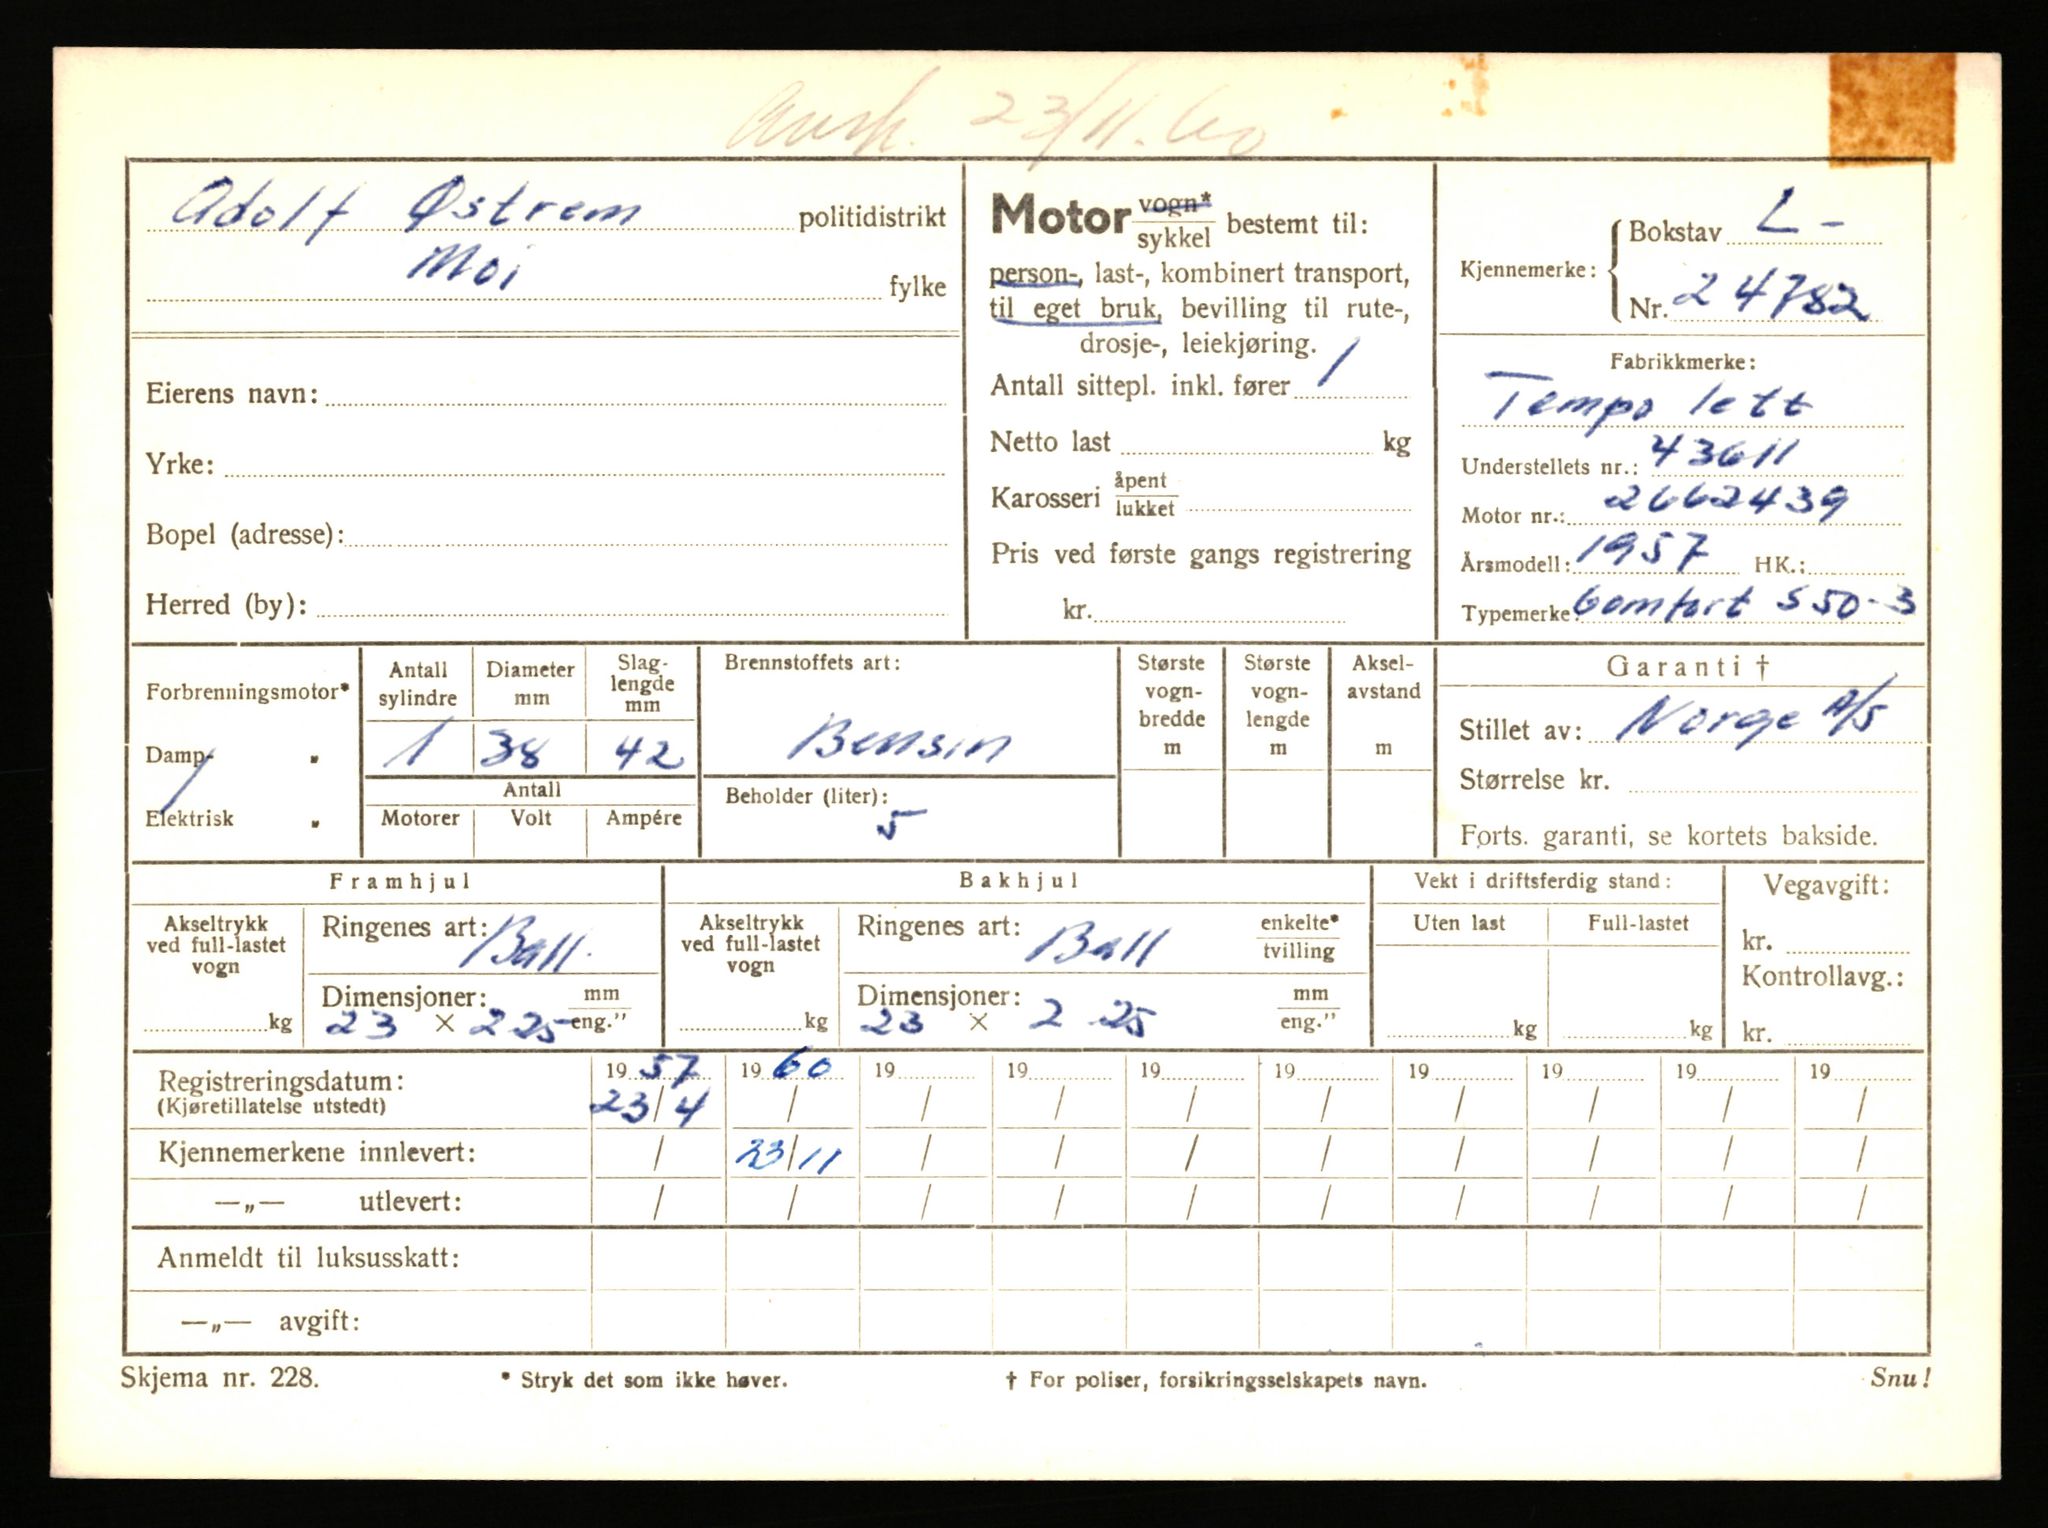 Avsk. 23/11.60
Adolf Østrem politidistrikt
Moi
fylke
Eierens navn:
Yrke:
Bopel (adresse):
Herred (by):
Motor vogn* / sykkel bestemt til:
person-, last-, kombinert transport,
til eget bruk, bevilling til rute-,
drosje-, leiekjøring.
Antall sittepl. inkl. fører 1
Netto last kg
Karosseri åpent / lukket
Pris ved første gangs registrering
kr.
Kjennemerke: Bokstav L-
Nr. 24782
Fabrikkmerke:
Tempo lett
Understellets nr.: 43611
Motor nr.: 2662439
Årsmodell: 1957 HK.:
Typemerke: Comfort S 50-3
Forbrenningsmotor*
Damp- "
Elektrisk "
Antall sylindre
1
Diameter mm
38
Slag-lengde mm
42
Antall
Motorer Volt Ampére
Brennstoffets art:
Bensin
Beholder (liter):
5
Største vogn-bredde m
Største vogn-lengde m
Aksel-avstand m
Garanti †
Stillet av: Norge A/S
Størrelse kr.
Forts. garanti, se kortets bakside.
Framhjul
Akseltrykk ved full-lastet vogn
kg
Ringenes art: Ball.
Dimensjoner: mm / eng."
23 x 2 25
Bakhjul
Akseltrykk ved full-lastet vogn
kg
Ringenes art: Ball enkelte* / tvilling
Dimensjoner: mm / eng."
23 x 2 25
Vekt i driftsferdig stand:
Uten last Full-lastet
kg kg
Vegavgift:
kr.
Kontrollavg.:
kr.
Registreringsdatum: 19 57 19 60 19 19 19 19 19 19 19 19
(Kjøretillatelse utstedt) 23/4 / / / / / / / / /
Kjennemerkene innlevert: / 23/11 / / / / / / / /
—„— utlevert: / / / / / / / / / /
Anmeldt til luksusskatt:
—„— avgift:
Skjema nr. 228. * Stryk det som ikke høver. † For poliser, forsikringsselskapets navn. Snu!